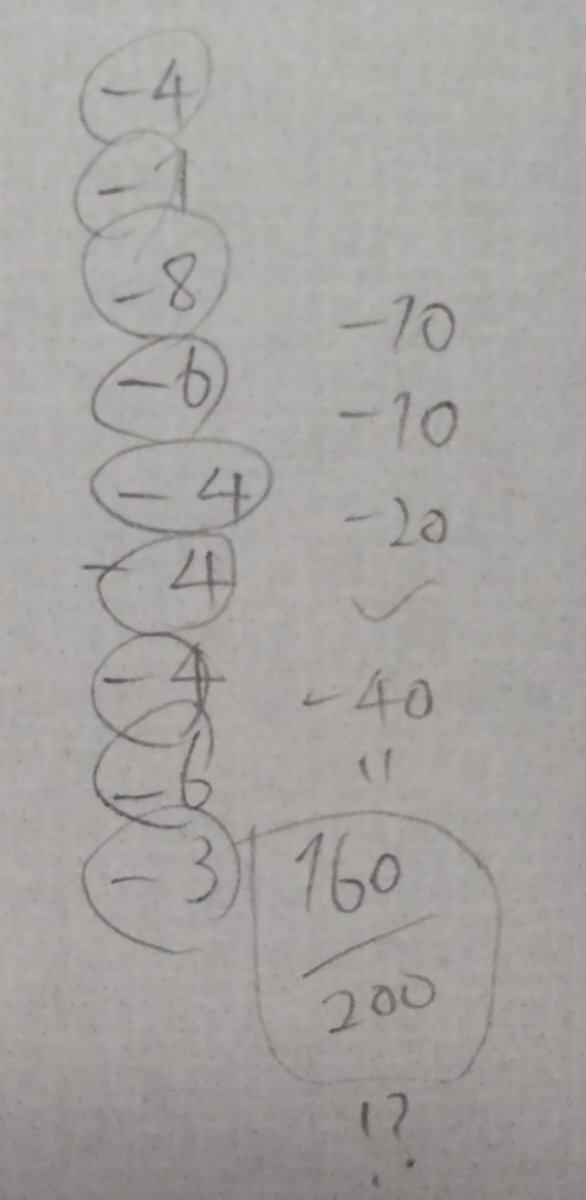 -4
-1
-8
-6
-4
-4
-4
-6
-3
-10
-10
-20
✓
-40
"
160
/
200
!?